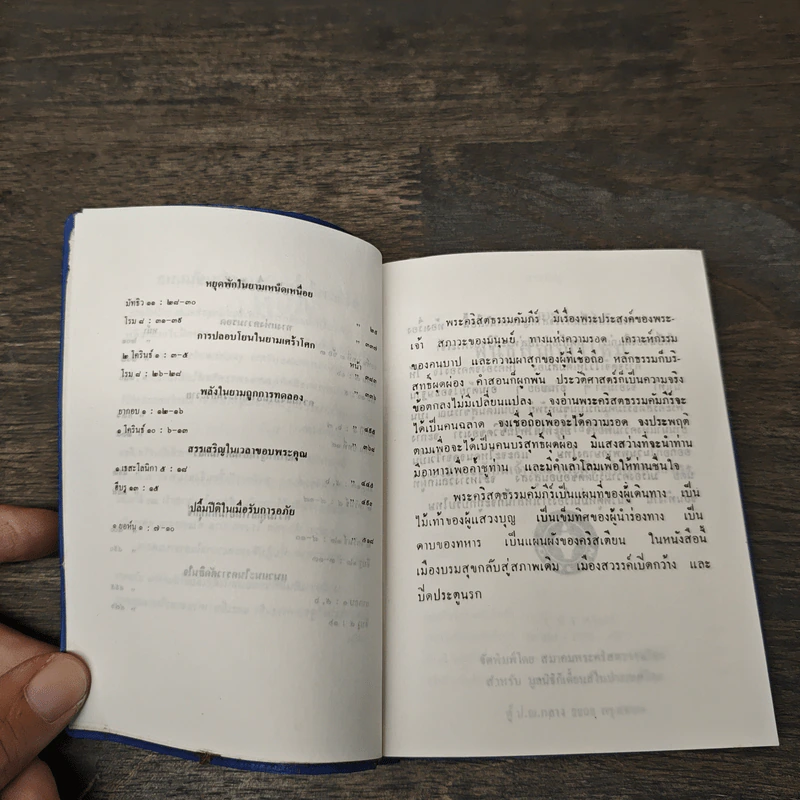 หยุดพักในยามเหน็ดเหนื่อย
มัทธิว ๑๑ : ๒๘-๓๐
โรม ๘ : ๓๑-๓๙
การปลอบโยนในยามเศร้าโศก
๒ โครินธ์ ๑ : ๓-๕ หน้า
โรม ๘ : ๒๖-๒๘
พลังในยามถูกการทดลอง
ยากอบ ๑ : ๑๒-๑๖
๑ โครินธ์ ๑๐ : ๖-๑๓
สรรเสริญในเวลาขอบพระคุณ
๑ เธสะโลนิกา ๕ : ๑๘
ฮีบรู ๑๓ : ๑๕
ปลื้มปีติในเมื่อรับการอภัย
๑ ยอห์น ๑ : ๗-๑๐
พระคริสตธรรมคัมภีร์ มีเรื่องพระประสงค์ของพระ-
เจ้า สภาวะของมนุษย์ ทางแห่งความรอด เคราะห์กรรม
ของคนบาป และความผาสุกของผู้ที่เชื่อถือ หลักธรรมก็บริ-
สุทธิ์ผุดผ่อง คำสอนก็ผูกพัน ประวัติศาสตร์ก็เป็นความจริง
ข้อตกลงไม่มีเปลี่ยนแปลง จงอ่านพระคริสตธรรมคัมภีร์จะ
ได้เป็นคนฉลาด จงเชื่อถือเพื่อจะได้ความรอด จงประพฤติ
ตามเพื่อจะได้เป็นคนบริสุทธิ์ผุดผ่อง มีแสงสว่างที่จะนำท่าน
มีอาหารเพื่อค้ำชูท่าน และมีคำเล้าโลมเพื่อให้ท่านชื่นใจ
พระคริสตธรรมคัมภีร์เป็นแผนที่ของผู้เดินทาง เป็น
ไม้เท้าของผู้แสวงบุญ เป็นเข็มทิศของผู้นำร่องทาง เป็น
ดาบของทหาร เป็นแผนผังของคริสเตียน ในหนังสือนี้
เมืองบรมสุขกลับสู่สภาพเดิม เมืองสวรรค์เปิดกว้าง และ
ปิดประตูนรก